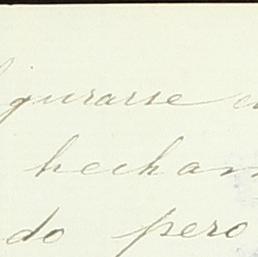 gurarse
hecham
do pero